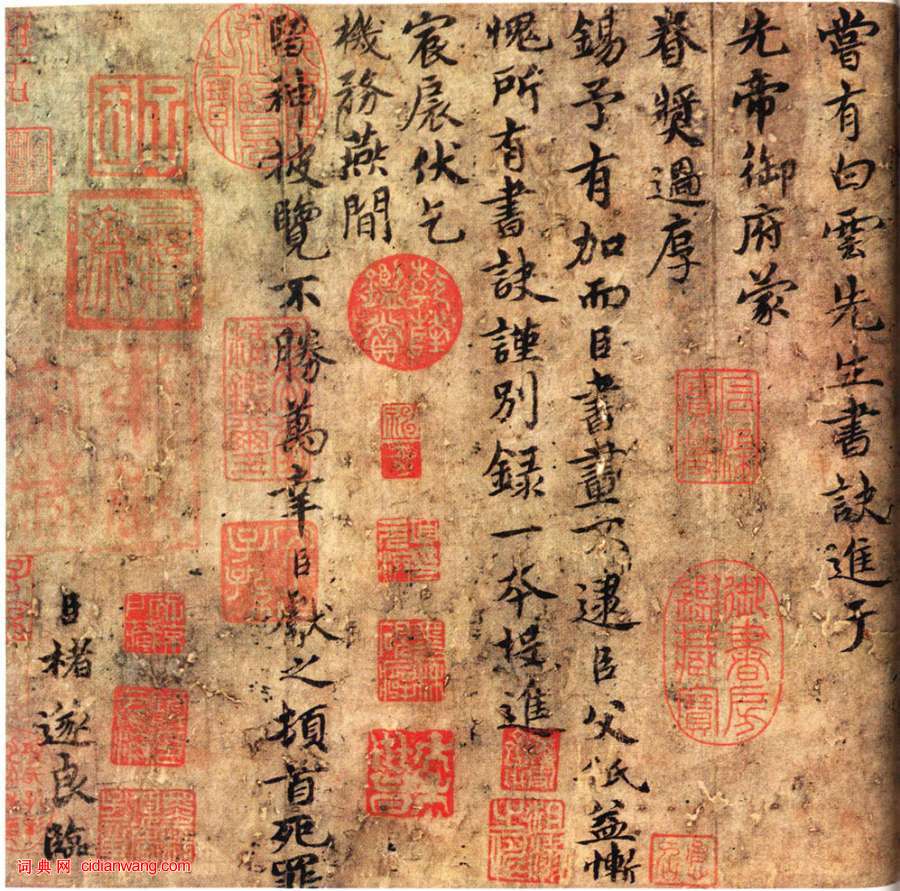 嘗有白雲先生書訣進于
先帝御府蒙
眷奬過厚
錫予有加而臣書畫不逮臣父祇益慚
愧所有書訣謹別錄一本投進
宸扆伏乞
機務燕間
留神披覽不勝萬幸臣獻之頓首死罪
臣褚遂良臨
御書房鑑藏寶
石渠寶笈
乾隆鑑賞
三希堂精鑑璽
宜子孫
词典网 cidianwang.com